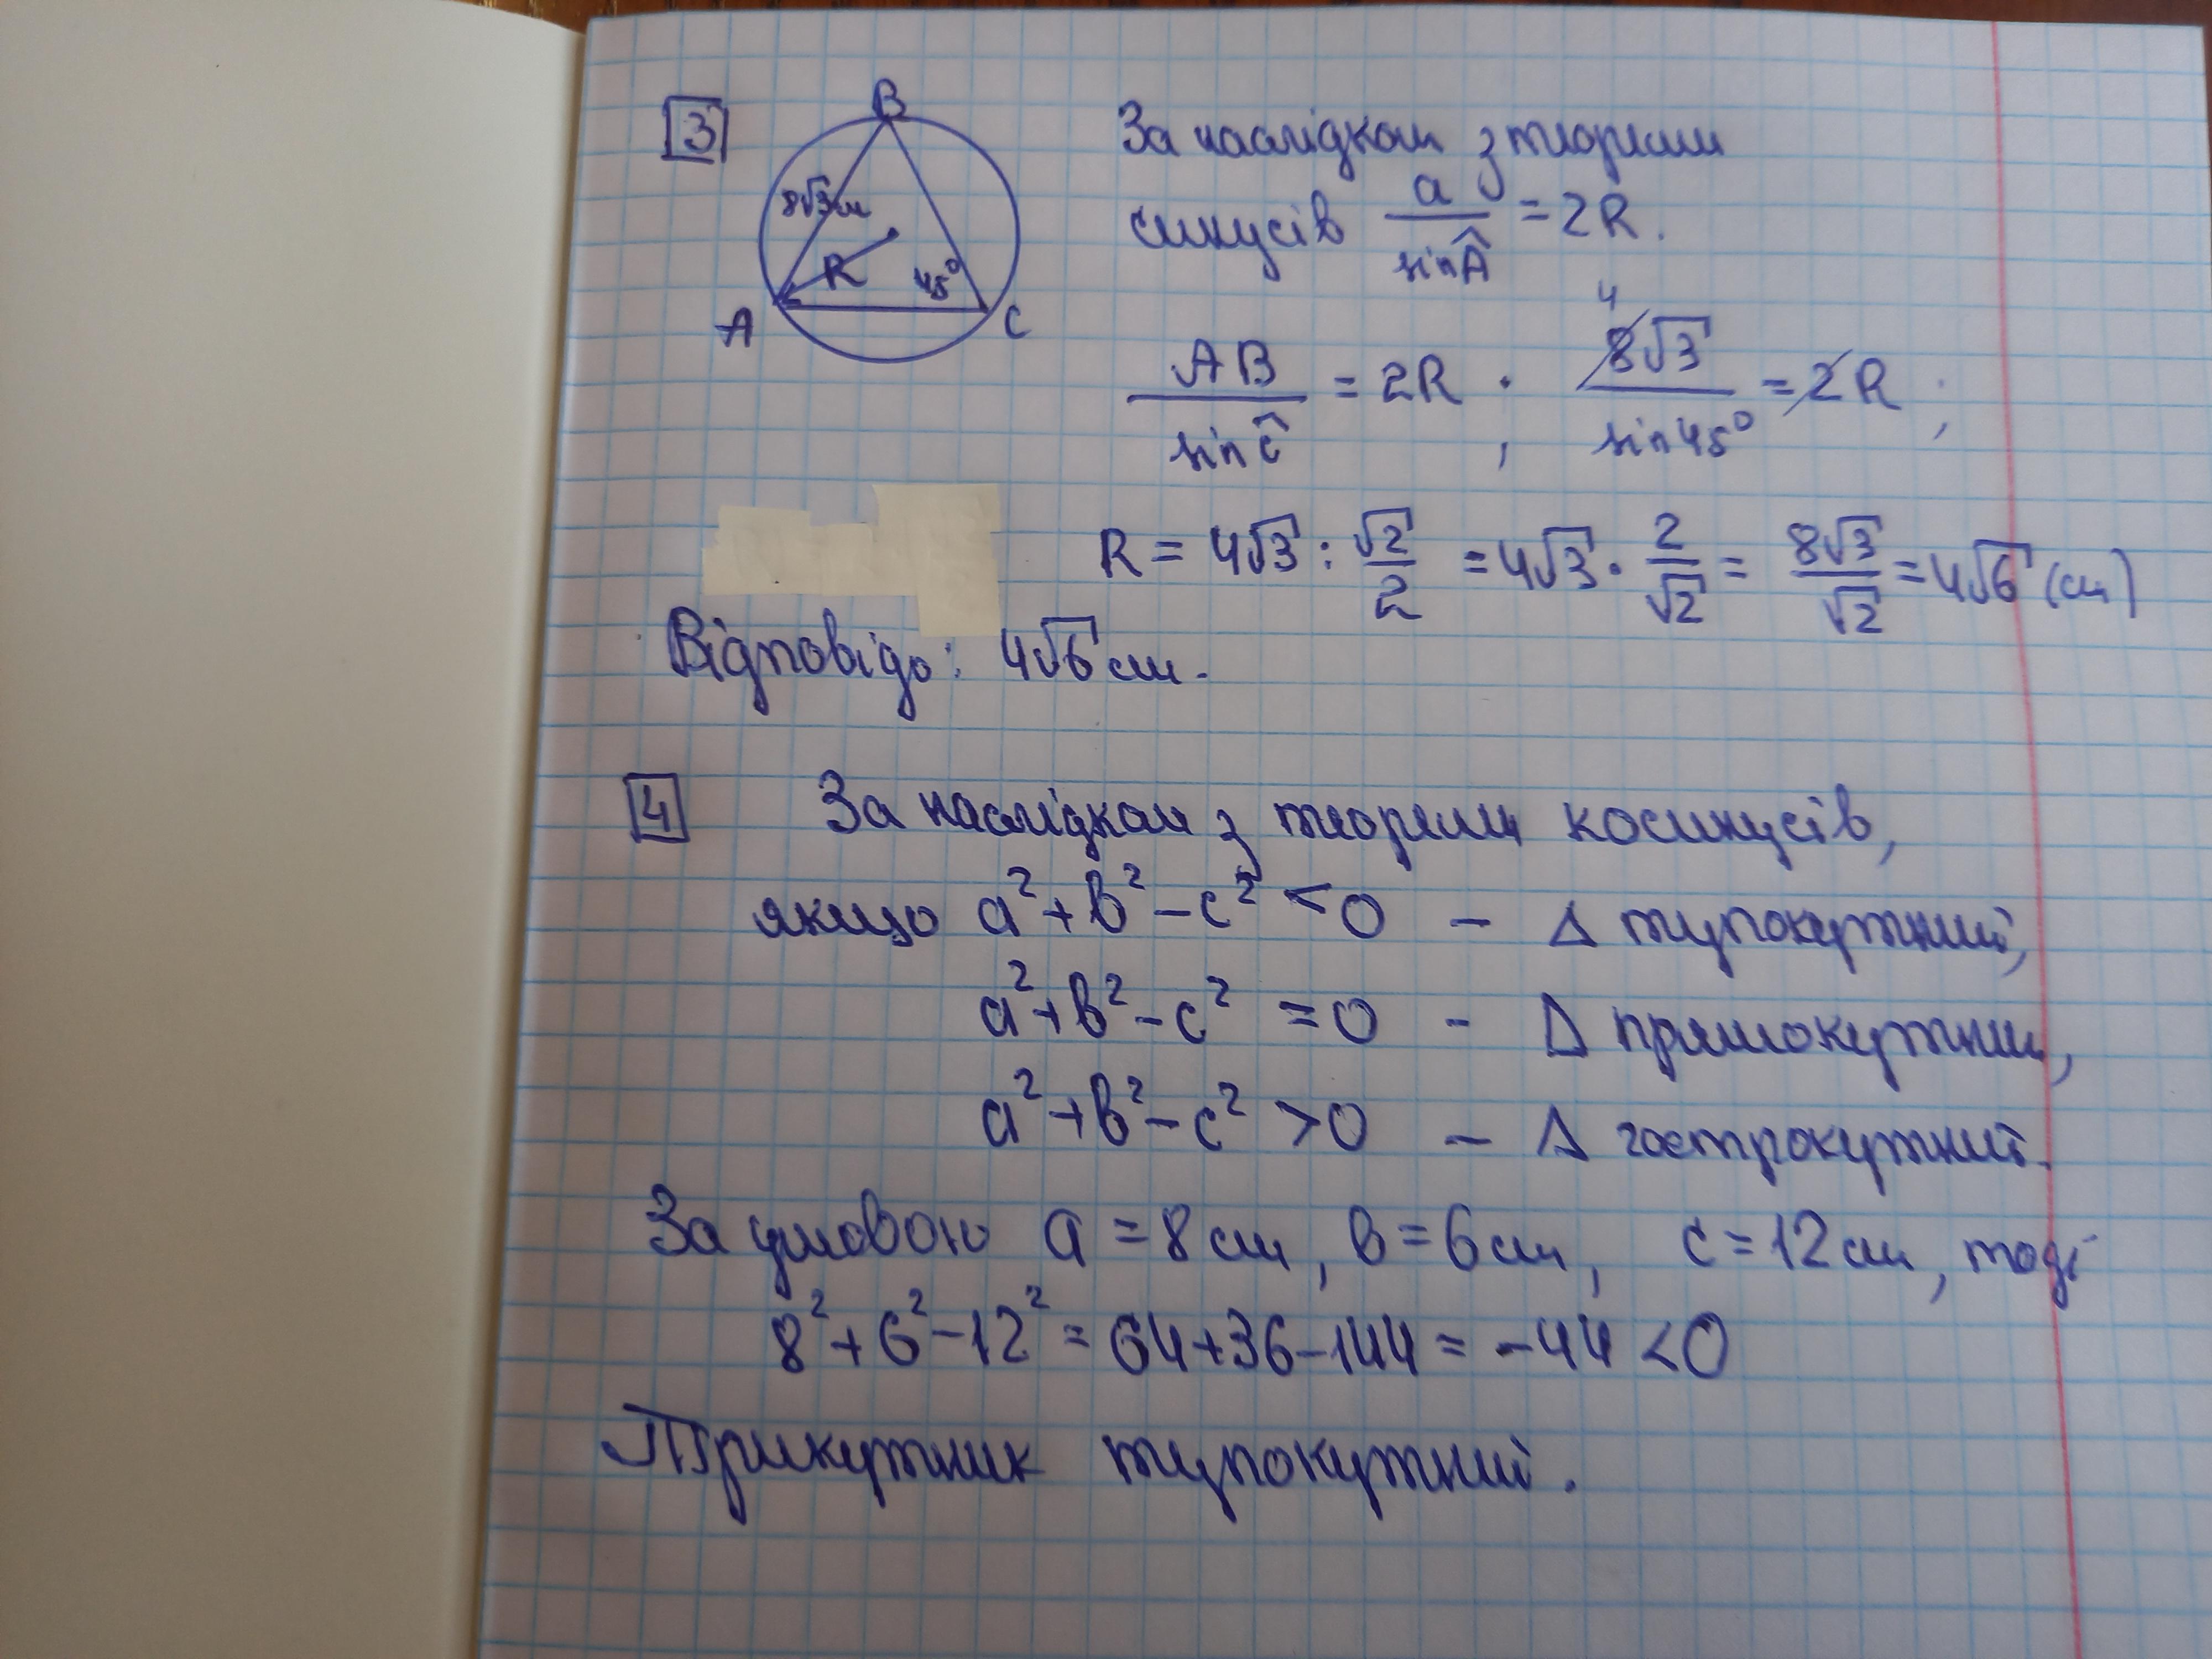 3
B
8√3см
R
45°
A
C
За наслідком з теореми
синусів a/sinÂ = 2R.
AB/sinĈ = 2R ; 4 8√3/sin45° = 2R ;
R = 4√3 : √2/2 = 4√3 · 2/√2 = 8√3/√2 = 4√6 (см)
Відповідь: 4√6 см.
4 За наслідком з теореми косинусів,
якщо a² + b² − c² < 0 − Δ тупокутний,
a² + b² − c² = 0 − Δ прямокутний,
a² + b² − c² > 0 − Δ гострокутний.
За умовою a = 8 см, b = 6 см, c = 12 см, тоді
8² + 6² − 12² = 64 + 36 − 144 = −44 < 0
Трикутник тупокутний.